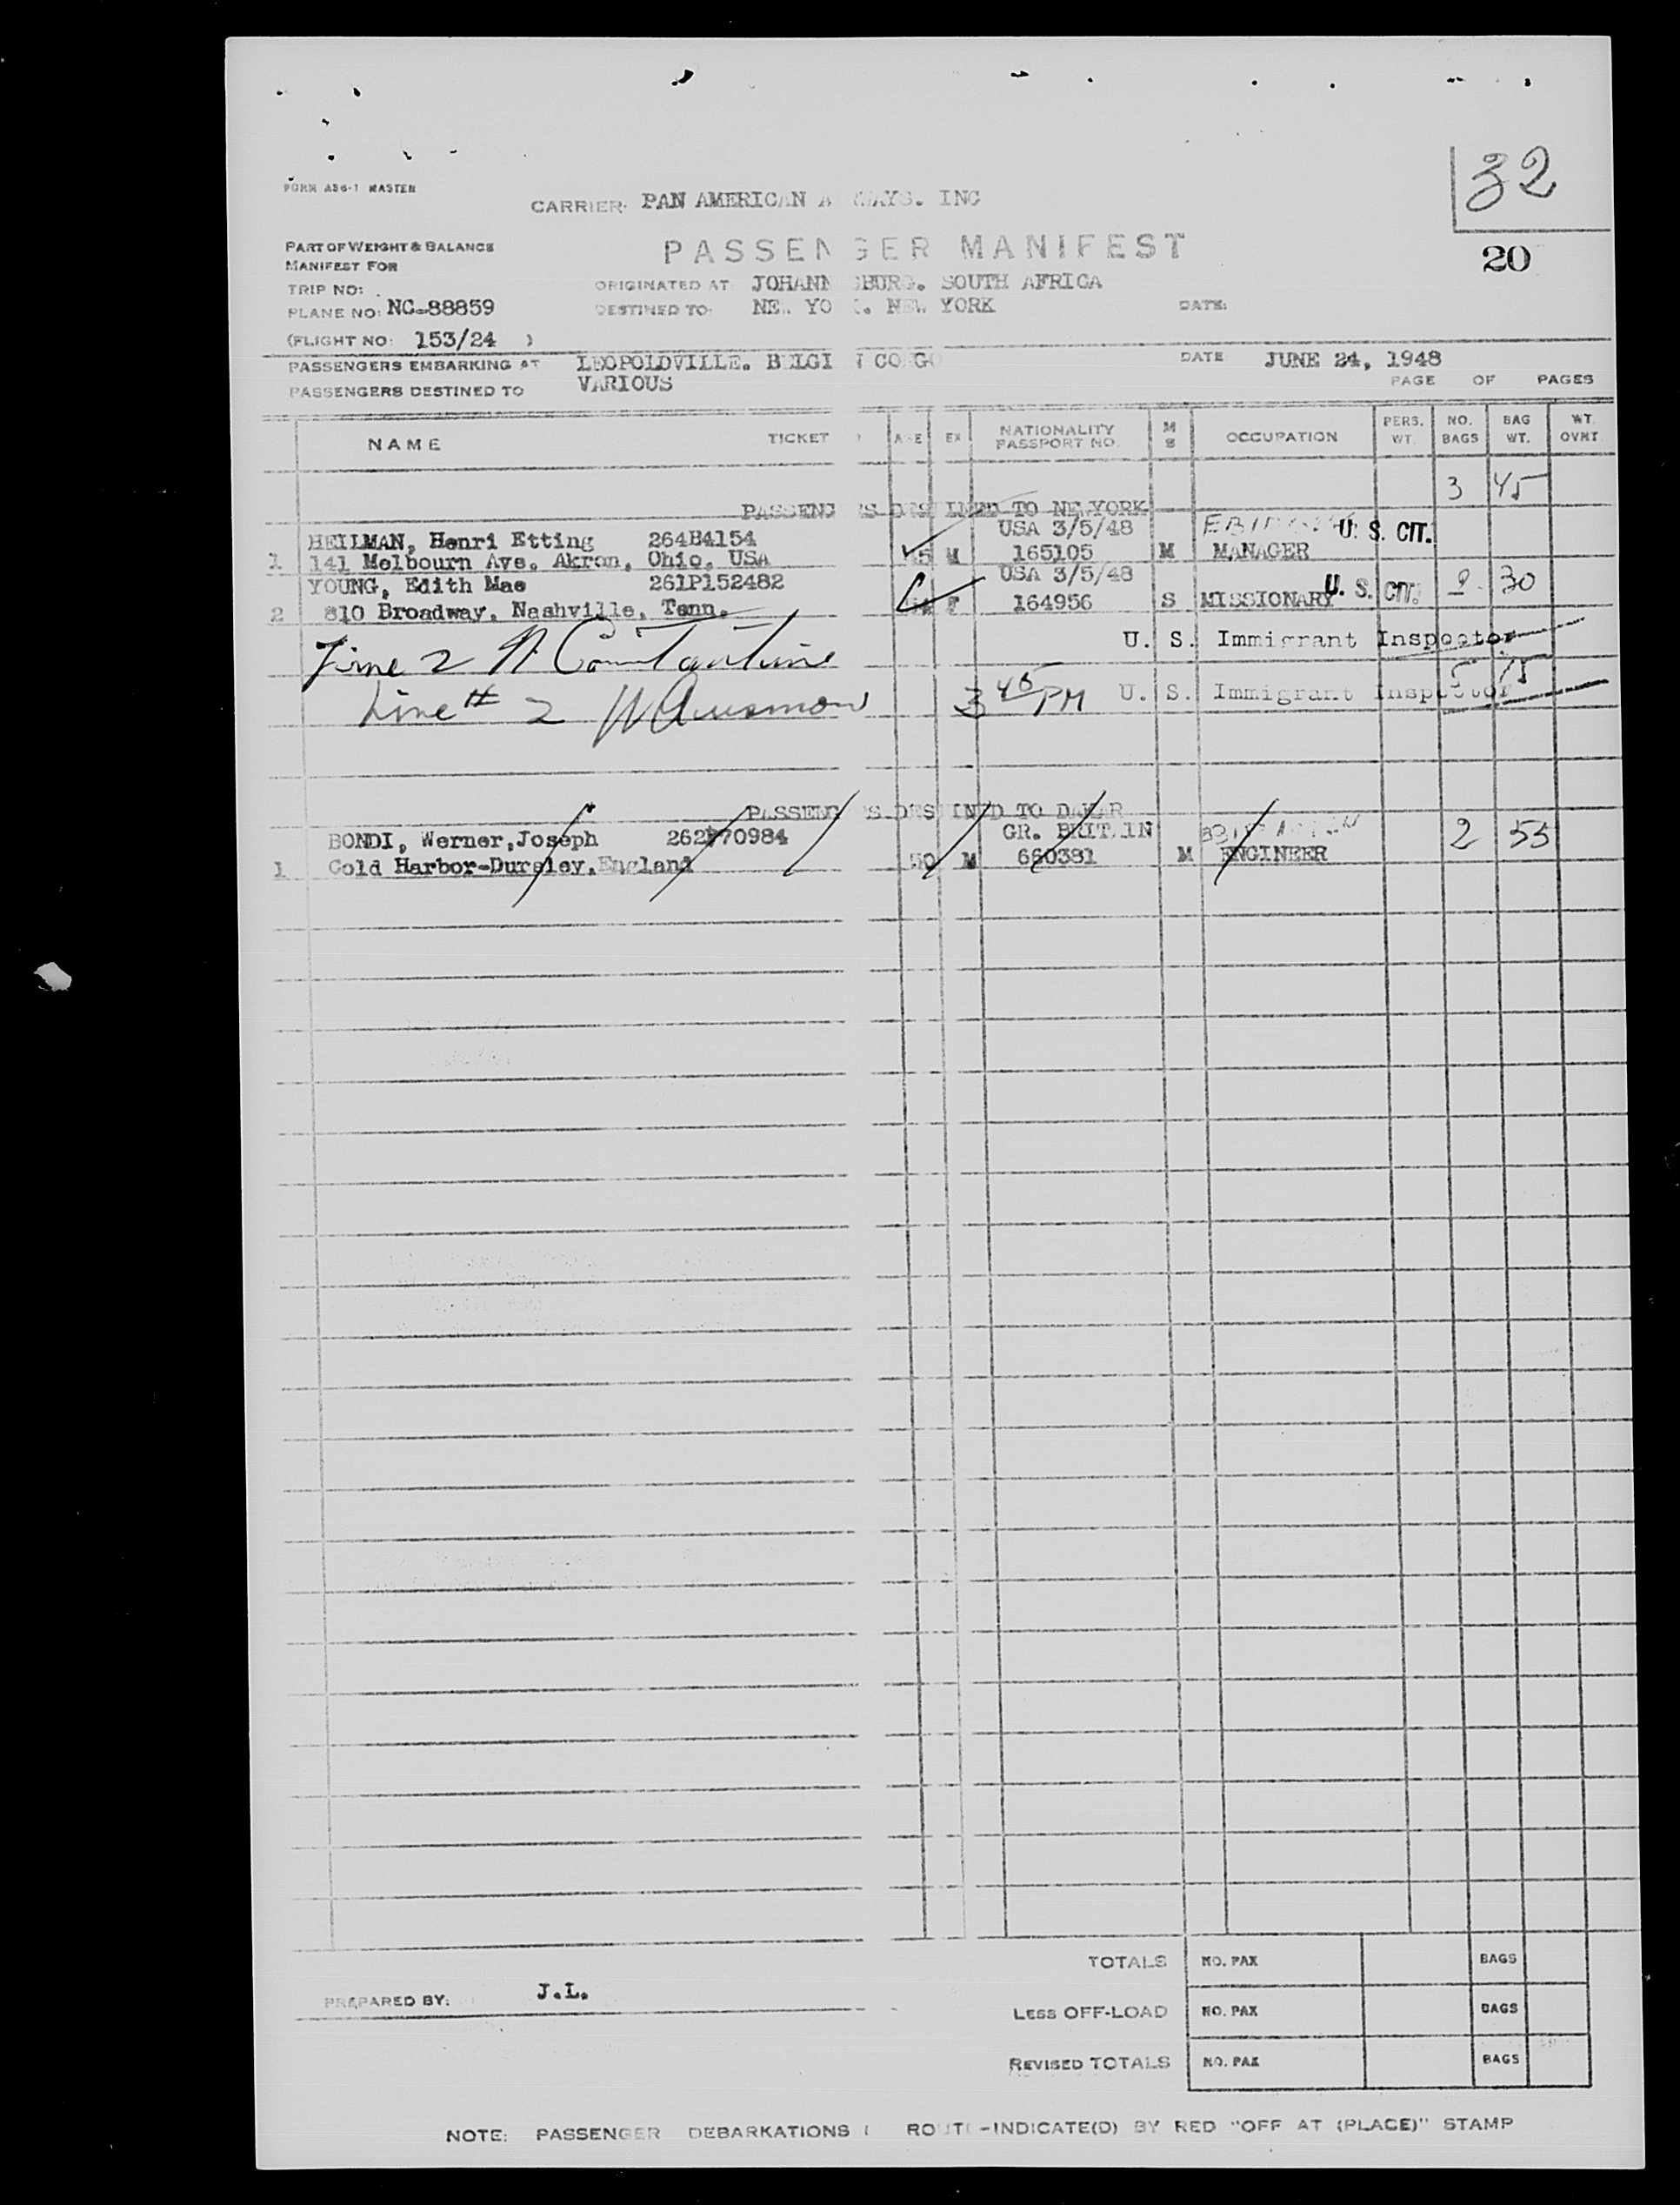 32
FORM AS6-1 MASTER
CARRIER: PAN AMERICAN A WAYS. INC
PART OF WEIGHT & BALANCE
MANIFEST FOR
PASSEN GER MANIFEST
20
TRIP NO:
ORIGINATED AT JOHANN SBURG. SOUTH AFRICA
PLANE NO: NC-88859
DESTINED TO: NEW YO K. NEW YORK
DATE:
(FLIGHT NO: 153/24 )
PASSENGERS EMBARKING AT LEOPOLDVILLE. BELGI N CONGO
DATE JUNE 24, 1948
PASSENGERS DESTINED TO VARIOUS
PAGE OF PAGES
NAME TICKET AGE EX NATIONALITY PASSPORT NO. M S OCCUPATION PERS. WT. NO. BAGS BAG WT. WT. OVHT
3 45
PASSENG RS DESTINED TO NEWYORK
HEILMAN, Henri Etting 264B4154 USA 3/5/48 U. S. CIT.
1 141 Melbourn Ave. Akron, Ohio. USA M 165105 M MANAGER
YOUNG, Edith Mae 261P152482 USA 3/5/48 U. S. CIT. 2 30
2 810 Broadway. Nashville, Tenn. F 164956 S MISSIONARY
Line 2 N Constantine U. S. Immigrant Inspector
5 75
Line # 2 3 45 PM U. S. Immigrant Inspector
PASSENG RS DESTINED TO DAKAR
BONDI, Werner, Joseph 262P70984 GR. BRITAIN 2 55
1 Cold Harbor-Dursley, England 50 M 660381 M ENGINEER
TOTALS NO. PAX BAGS
PREPARED BY: J.L.
LESS OFF-LOAD NO. PAX BAGS
REVISED TOTALS NO. PAX BAGS
NOTE: PASSENGER DEBARKATIONS ROUTE-INDICATE(D) BY RED "OFF AT (PLACE)" STAMP